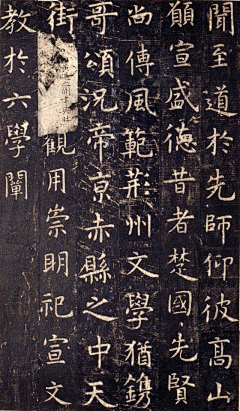 聞至道於先師仰彼高山
願宣盛德昔者楚國先賢
尚傳風範荊州文學猶鐫
哥頌況帝亰赤縣之中天
街觀用崇明祀宣文
教於六學闡